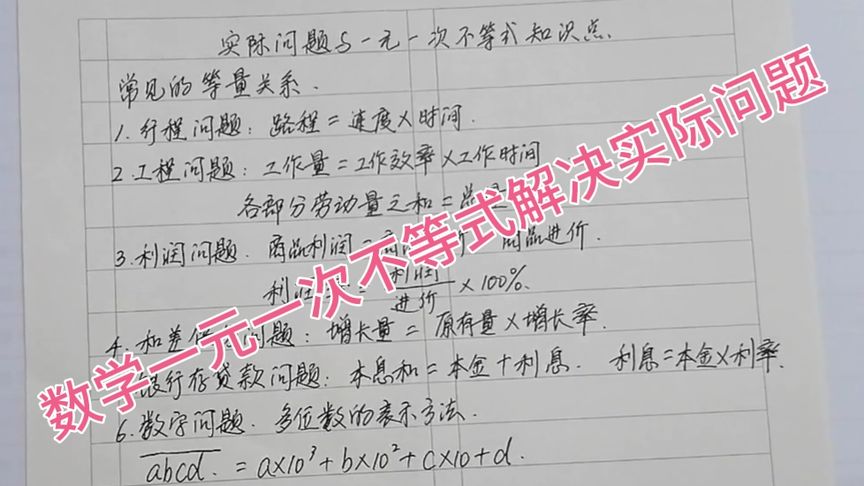 实际问题与一元一次不等式知识点.
常见的等量关系.
1.行程问题: 路程=速度×时间.
2.工程问题: 工作量=工作效率×工作时间
各部分劳动量之和=总
3.利润问题. 商品利润= 商品进价.
利润 = 利润/进价 ×100%.
4.和差 问题: 增长量= 原有量×增长率.
银行存贷款问题: 本息和=本金+利息. 利息=本金×利率.
6.数字问题. 多位数的表示方法.
abcd. =a×10³+b×10²+c×10+d.
数学一元一次不等式解决实际问题